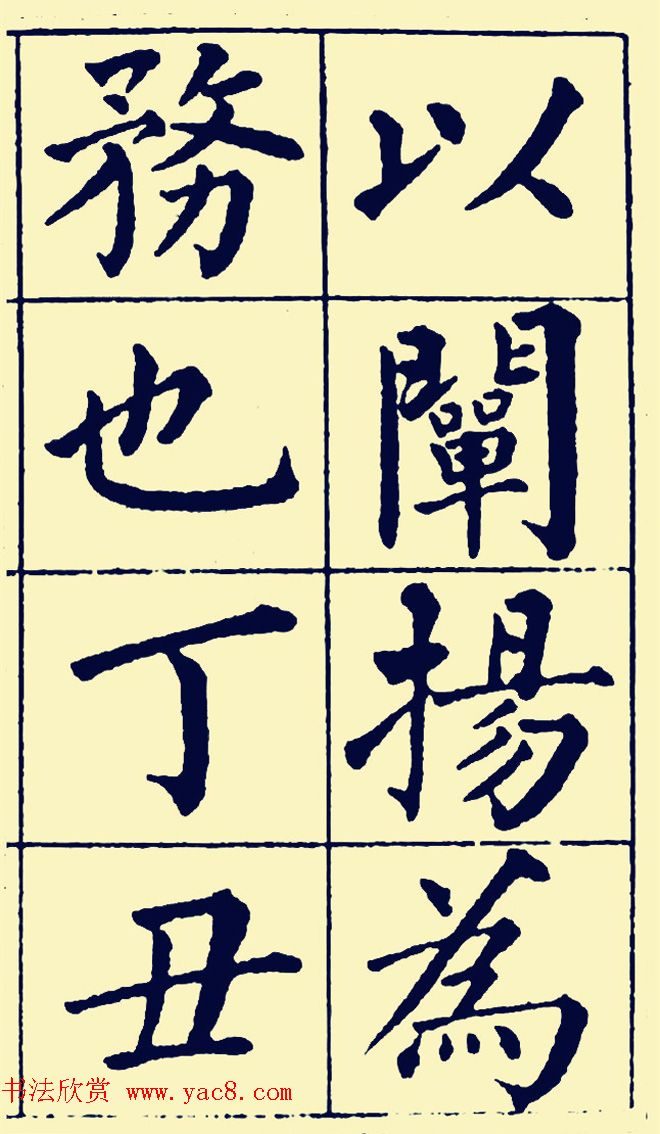 以闡揚為
務也丁丑
书法欣赏 www.yac8.com